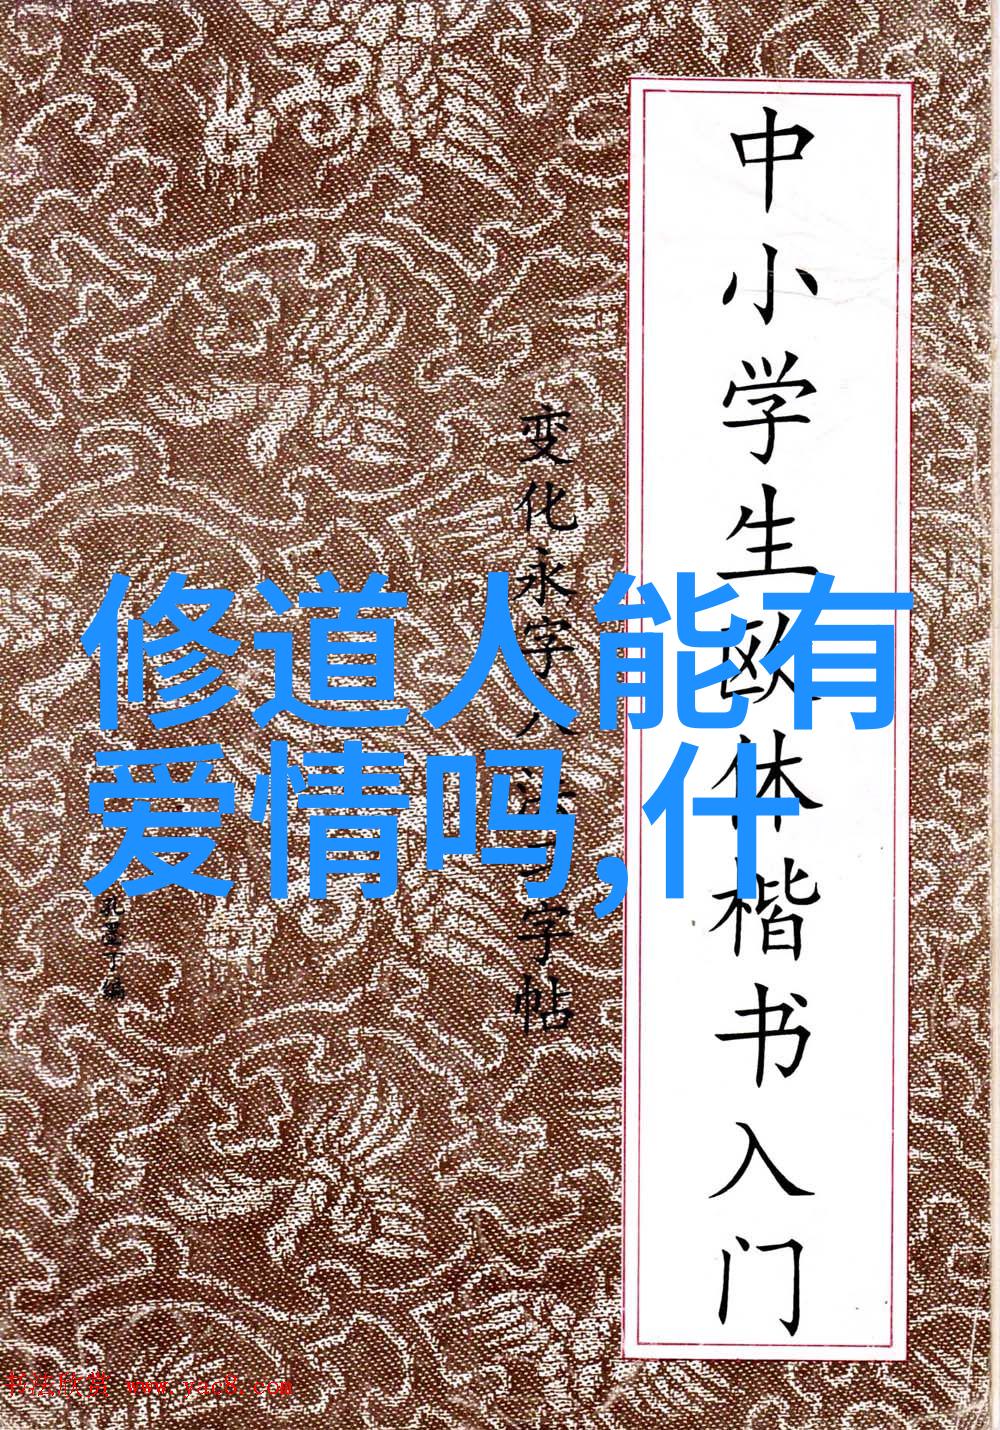 中小学生欧体楷书入门
变化永字八法字帖
孔墨丁编
修道人能有
爱情吗,什
书法欣赏 www.yac8.com